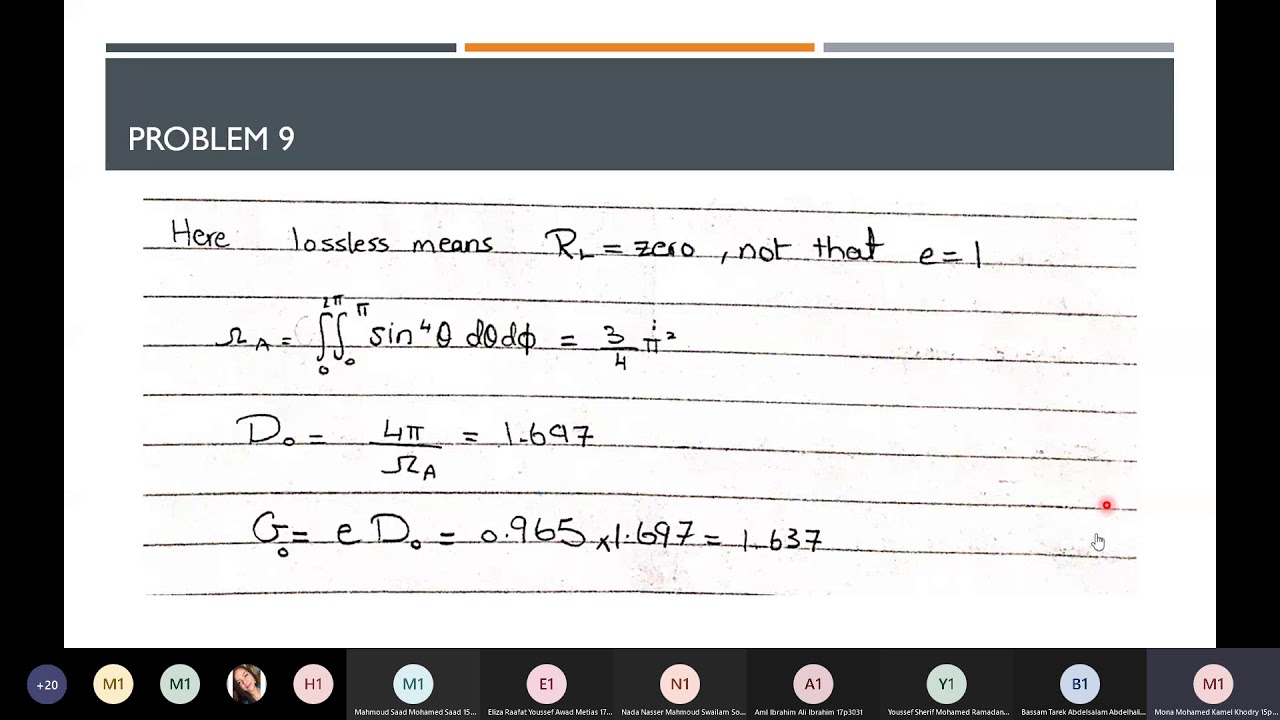 PROBLEM 9
Here lossless means R_L = zero, not that e = 1
Ω_A = ∫₀^{2π} ∫₀^π sin⁴θ dθdφ = 3/4 π²
D₀ = 4π/Ω_A = 1.697
G₀ = e D₀ = 0.965 × 1.697 = 1.637
+20
M1
M1
H1
M1
E1
N1
A1
Y1
B1
M1
Mahmoud Saad Mohamed Saad 15...
Eliza Raafat Youssef Awad Metias 17...
Nada Nasser Mahmoud Swailam So...
Aml Ibrahim Ali Ibrahim 17p3031
Youssef Sherif Mohamed Ramadan...
Bassam Tarek Abdelsalam Abdelhali...
Mona Mohamed Kamel Khodry 15p...